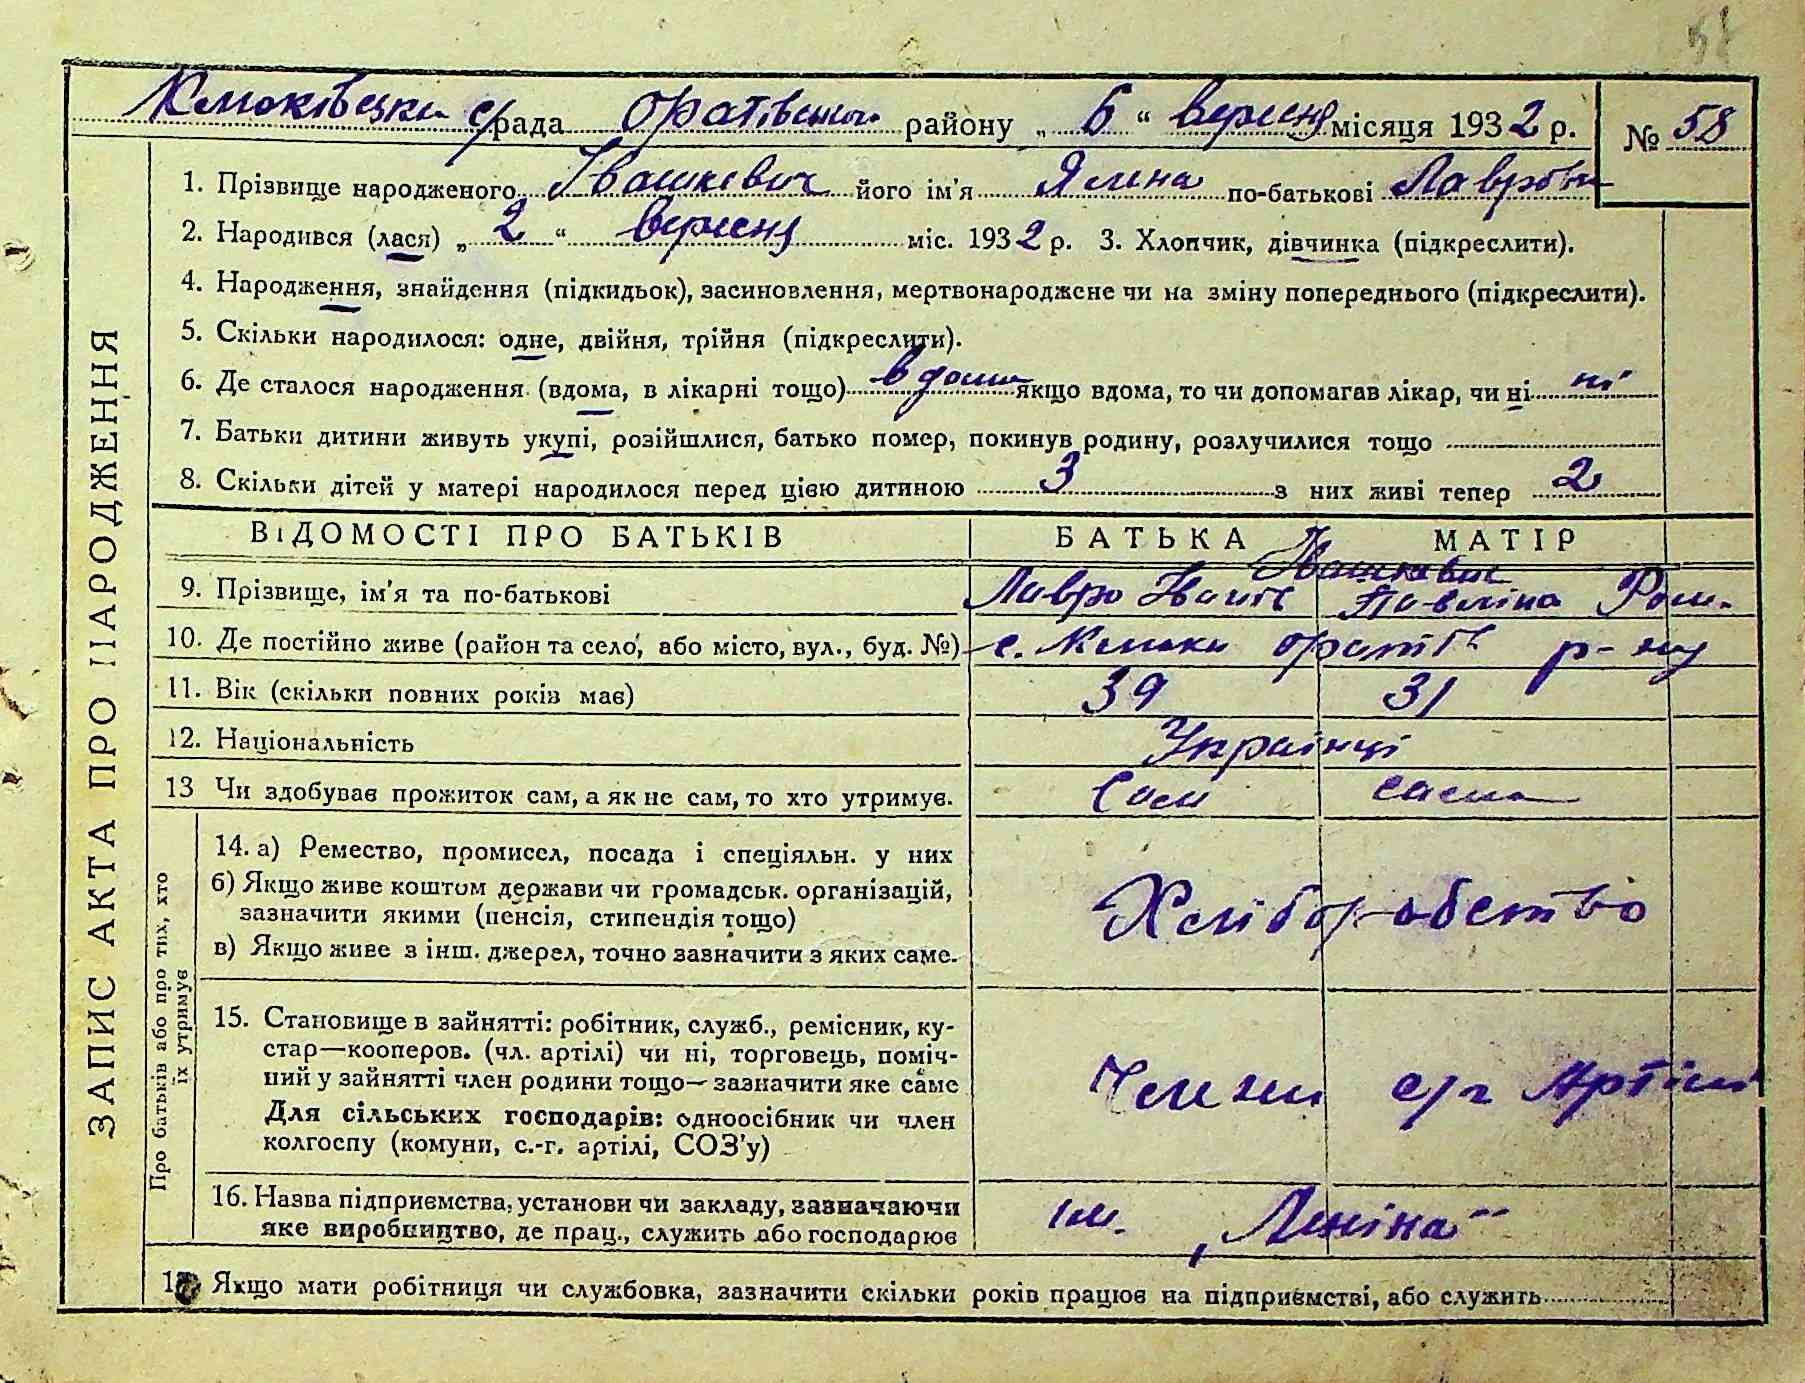 57
Клюківецька с/рада Оратівськ. району „ 6 “ вересня місяця 1932 р. № 58
1. Прізвище народженого Івашкевич його ім'я Яліна по-батькові Лавров.
2. Народився (лася) „ 2 “ вересня міс. 1932 р. 3. Хлопчик, дівчинка (підкреслити).
4. Народження, знайдення (підкидьок), засиновлення, мертвонароджене чи на зміну попереднього (підкреслити).
5. Скільки народилося: одне, двійня, трійня (підкреслити).
6. Де сталося народження (вдома, в лікарні тощо) вдома якщо вдома, то чи допомагав лікар, чи ні ні
7. Батьки дитини живуть укупі, розійшлися, батько помер, покинув родину, розлучилися тощо
8. Скільки дітей у матері народилося перед цією дитиною 3 з них живі тепер 2
ВІДОМОСТІ ПРО БАТЬКІВ БАТЬКА МАТІР
Івашкевич
9. Прізвище, ім'я та по-батькові Лавро Іван. Павліна Ром.
10. Де постійно живе (район та село, або місто, вул., буд. №) с. Клюки Оратів р-ну
11. Вік (скільки повних років має) 39 31
12. Національність Українці
13 Чи здобуває прожиток сам, а як не сам, то хто утримує. Сам сама
14. а) Ремество, промисел, посада і спеціяльн. у них
б) Якщо живе коштом держави чи громадськ. організацій,
зазначити якими (пенсія, стипендія тощо)
Хліборобство
в) Якщо живе з інш. джерел, точно зазначити з яких саме.
15. Становище в зайнятті: робітник, служб., ремісник, ку-
стар—кооперов. (чл. артілі) чи ні, торговець, поміч-
ний у зайнятті член родини тощо—зазначити яке саме
Члени с/г Артілі
Для сільських господарів: одноосібник чи член
колгоспу (комуни, с.-г. артілі, СОЗ'у)
16. Назва підприємства, установи чи закладу, зазначаючи
яке виробництво, де прац., служить або господарює
ім. „Леніна“
17. Якщо мати робітниця чи службовка, зазначити скільки років працює на підприємстві, або служить
ЗАПИС АКТА ПРО НАРОДЖЕННЯ
Про батьків або про тих, хто
їх утримує